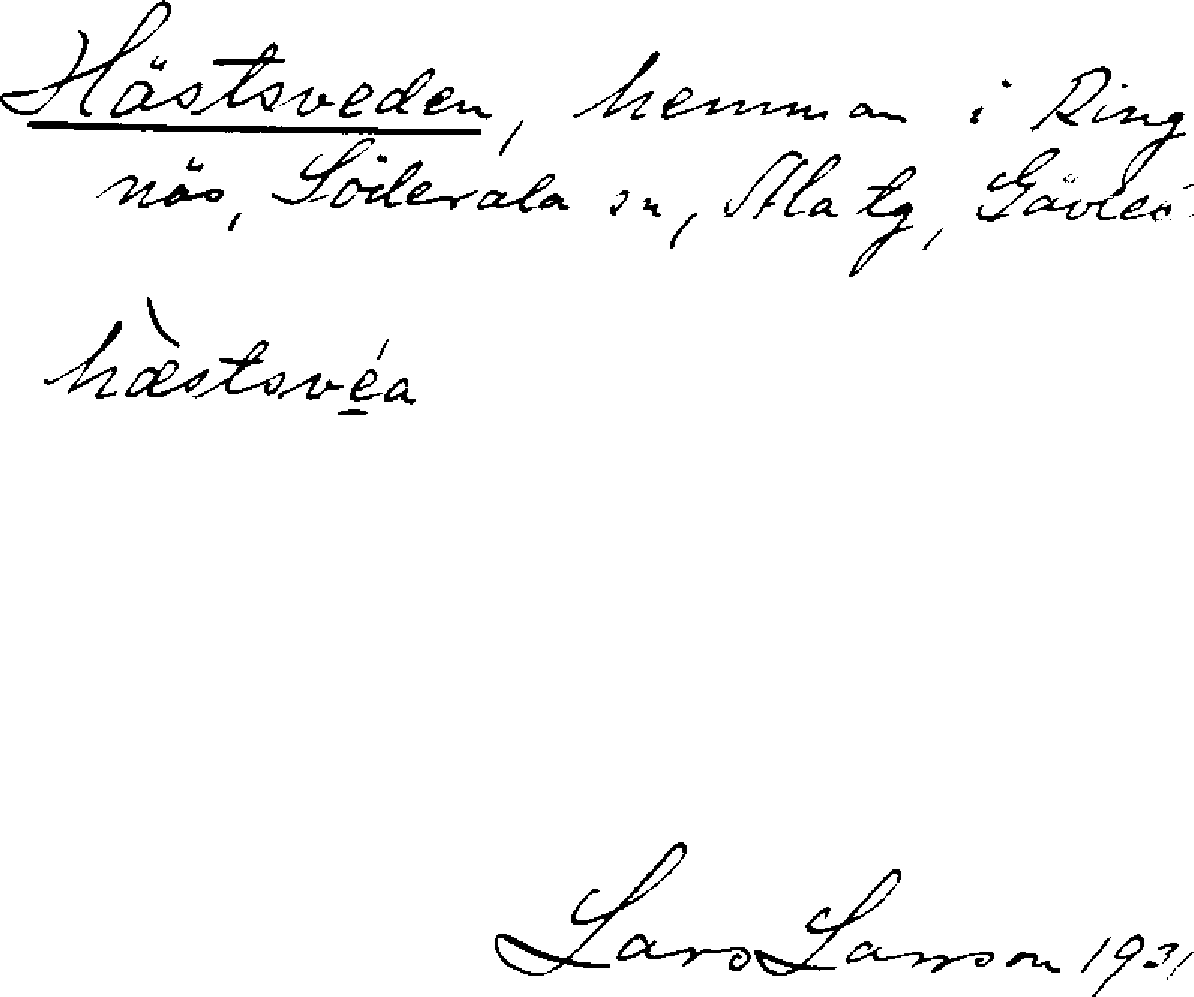 Hästsveden, hemman i Ring
näs, Söderala sn, Ala tg, Gävleb.
hæ̀stsvé̱a
Lars Larsson 1931